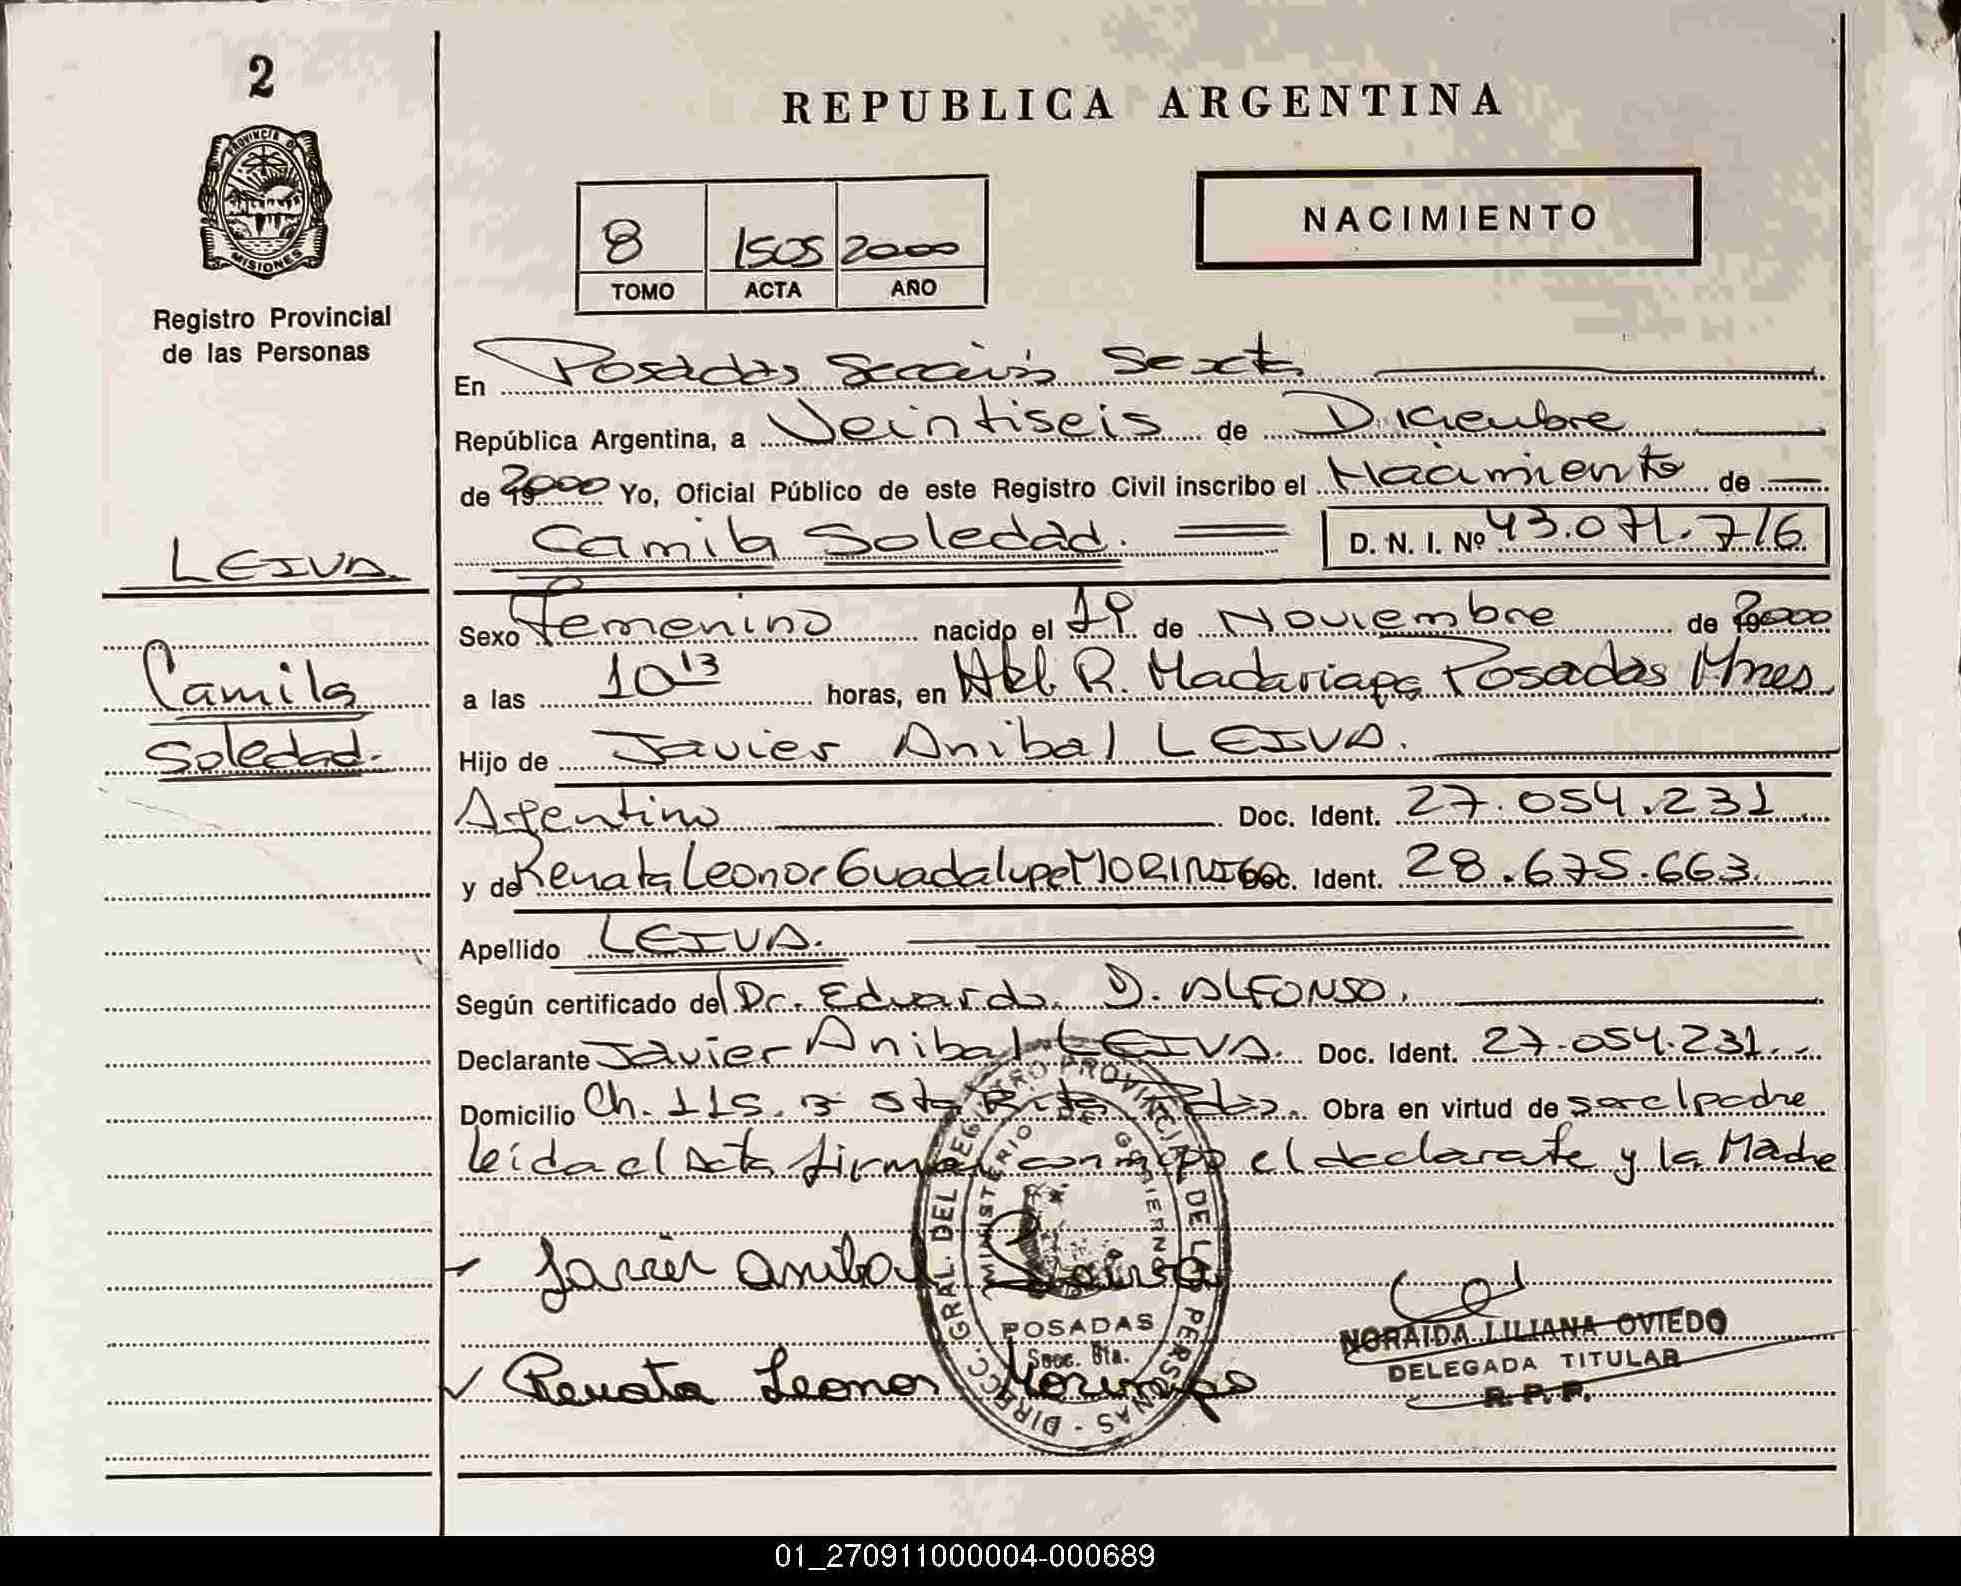 2
REPUBLICA ARGENTINA
PROVINCIA D MISIONES
NACIMIENTO
8 1505 2000
TOMO ACTA AÑO
Registro Provincial
de las Personas
En Posadas Sección Sexta
República Argentina, a Veintiseis de Diciembre
de 2000 Yo, Oficial Público de este Registro Civil inscribo el Nacimiento de
Camila Soledad. D. N. I. Nº 43.071.716
LEIVA.
Camila
Soledad.
Sexo Femenino nacido el de Noviembre de 2000
a las 10 13 horas, en R. Madariaga Posadas Mnes
Hijo de Javier Anibal LEIVA.
Argentino Doc. Ident. 27.054.231
y de Renata Leonor Guadalupe MORINIGO Doc. Ident. 28.675.663.
Apellido LEIVA.
Según certificado del Dr. Eduardo D. ALFONSO.
Declarante Javier Anibal LEIVA. Doc. Ident. 27.054.231.
Domicilio Ch. 115. Sta Rita Pdas. Obra en virtud de ser el padre
leida el Acta firman conmigo el declarate y la Madre
Javier Anibal Leiva
Renata Leonor Morinigo
DIRECC. GRAL. DEL REGISTRO PROVINCIAL DE LAS PERSONAS
MINISTERIO DE GOBIERNO
POSADAS
Secc. 6ta.
NORAIDA LILIANA OVIEDO
DELEGADA TITULAR
R. P. P.
01_270911000004-000689